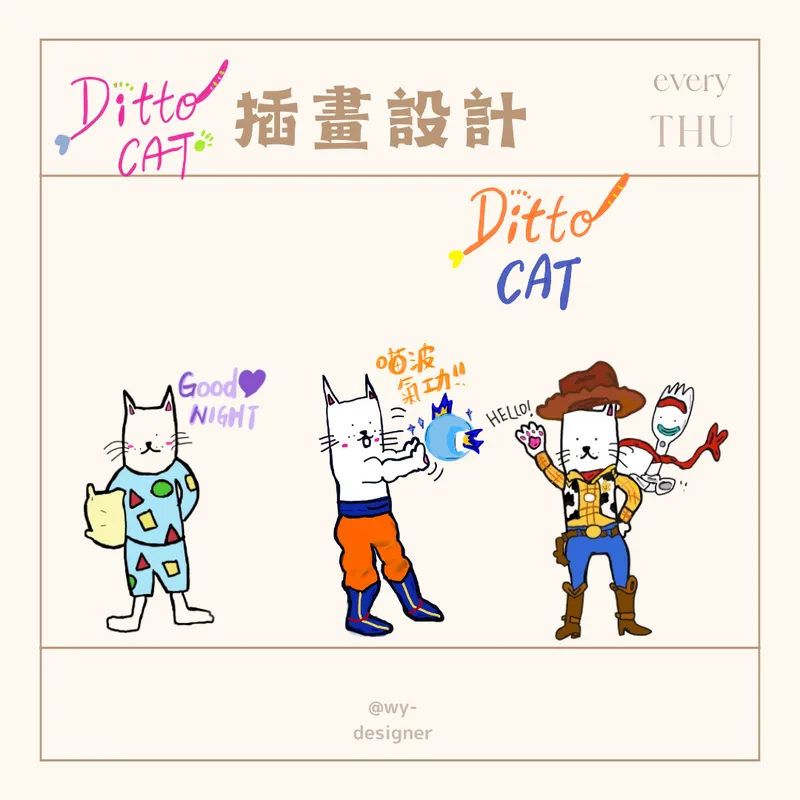 Ditto
CAT
插畫設計
every
THU
Ditto
CAT
Good
NIGHT
喵波
氣功!!
HELLO!
@wy-
designer